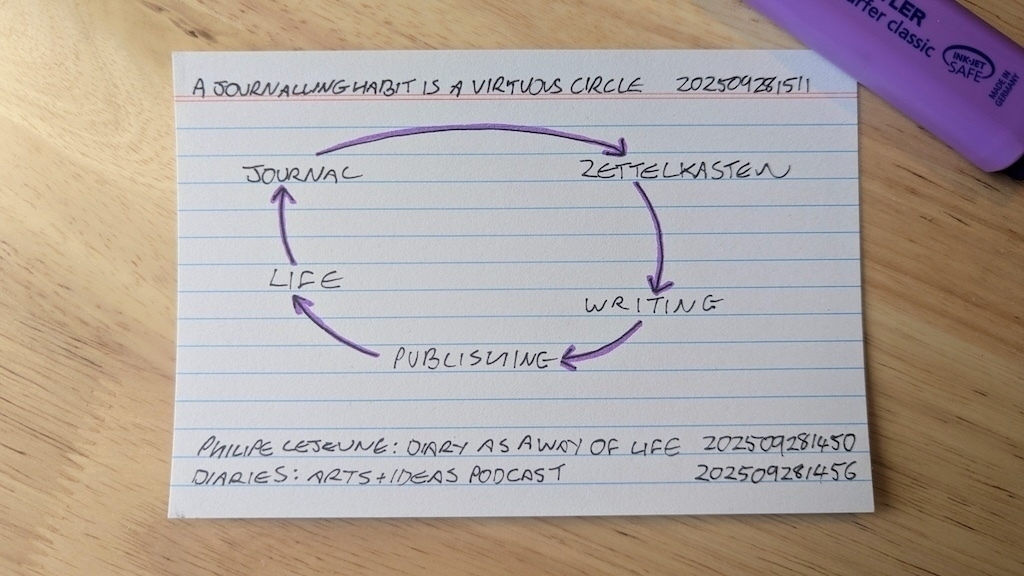 LER
arffer classic
INK-JET
SAFE
MADE IN
GERMANY
A JOURNALLING HABIT IS A VIRTUOUS CIRCLE 202509281511
JOURNAL
ZETTELKASTEN
LIFE
WRITING
PUBLISHING
PHILIPE LEJEUNE: DIARY AS A WAY OF LIFE 202509281450
DIARIES: ARTS + IDEAS PODCAST 202509281456